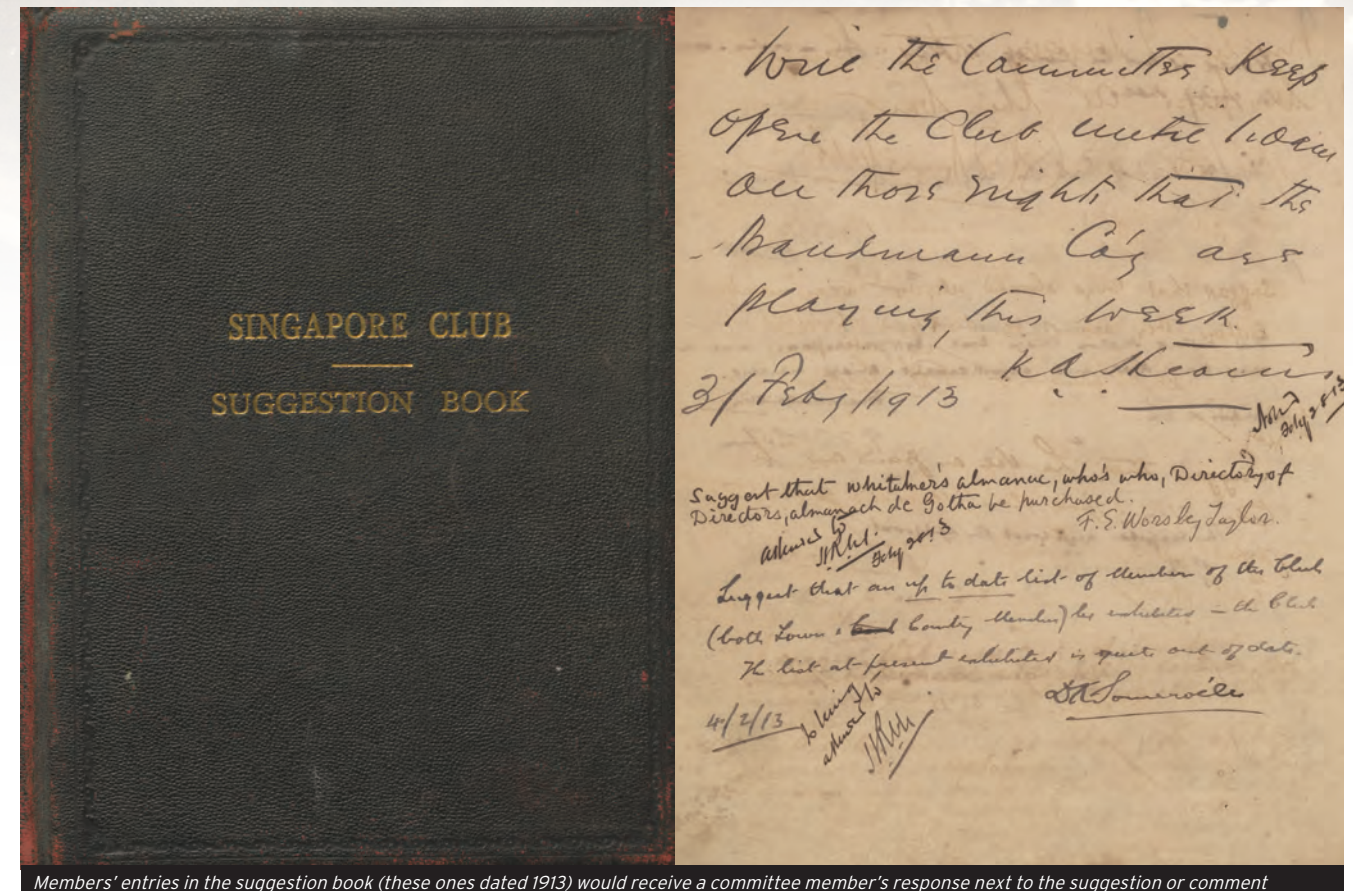 SINGAPORE CLUB
SUGGESTION BOOK
Will the Committee Keep
open the Club until 1.0am
on those nights that the
Bandmann Co'y are
playing, this week.
3/Feby/1913
Noted
Feby 28 13
Suggest that whitaker's almanac, who's who, Directory of
Directors, almanach de Gotha be purchased.
F. E. Worsley Taylor.
attended to
Feby 28 13
Suggest that an up to date list of Member of the Club
(both Town & Country Member) be exhibited in the Club
The list at present exhibited is quite out of date.
D K Somerville
4/2/13
is being
attended to
Members' entries in the suggestion book (these ones dated 1913) would receive a committee member's response next to the suggestion or comment